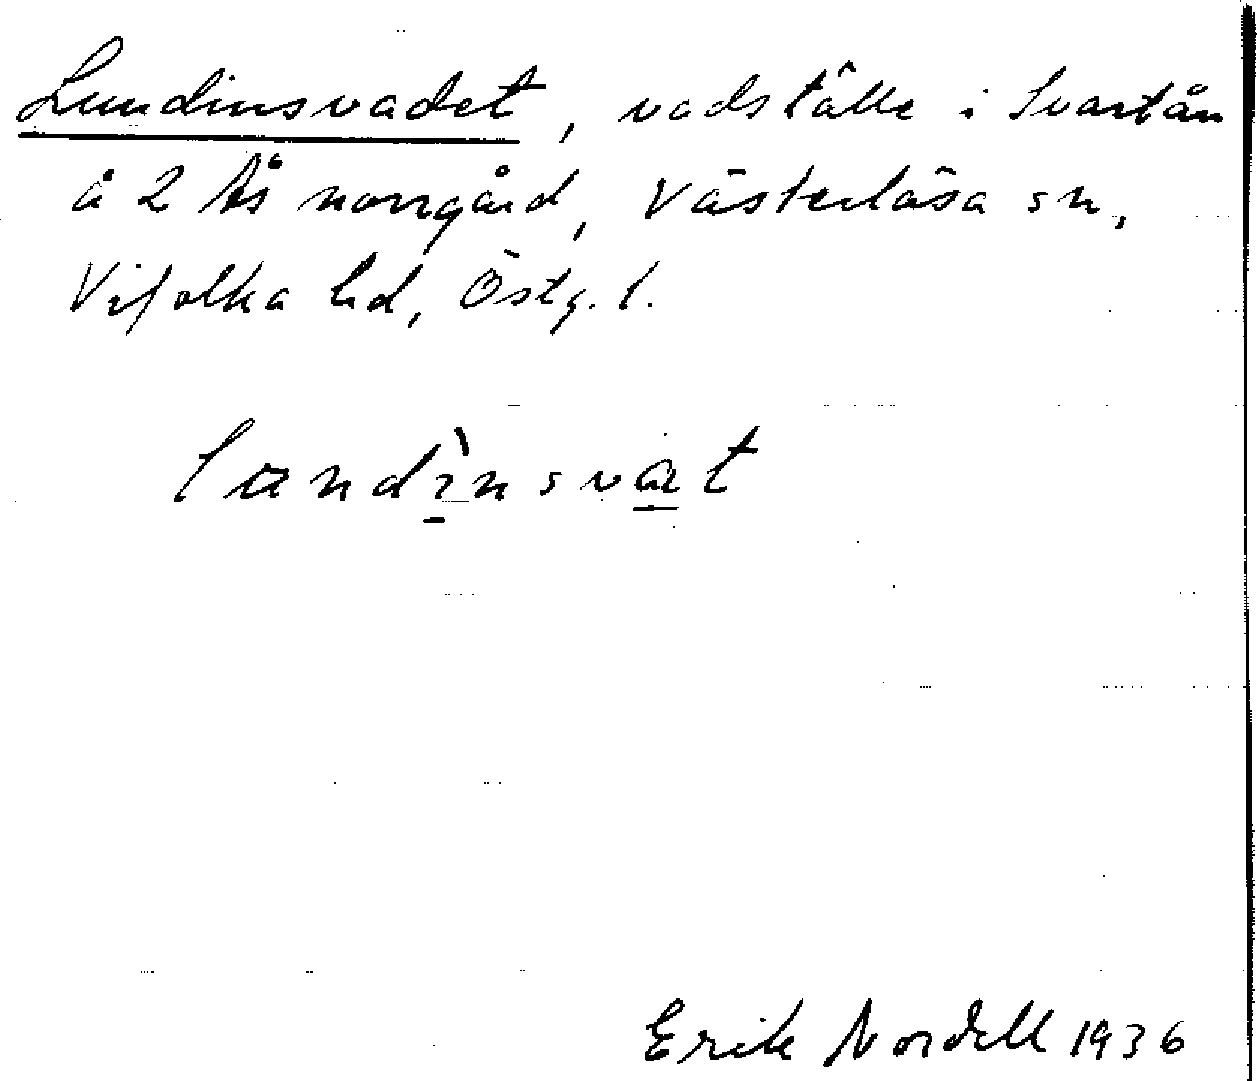 Lundinsvadet, vadställe i Svartån
å 2 Ås norrgård, Västerlösa sn,
Vifolka hd, Östg. l.
landìnsvat
Erik Nordell 1936